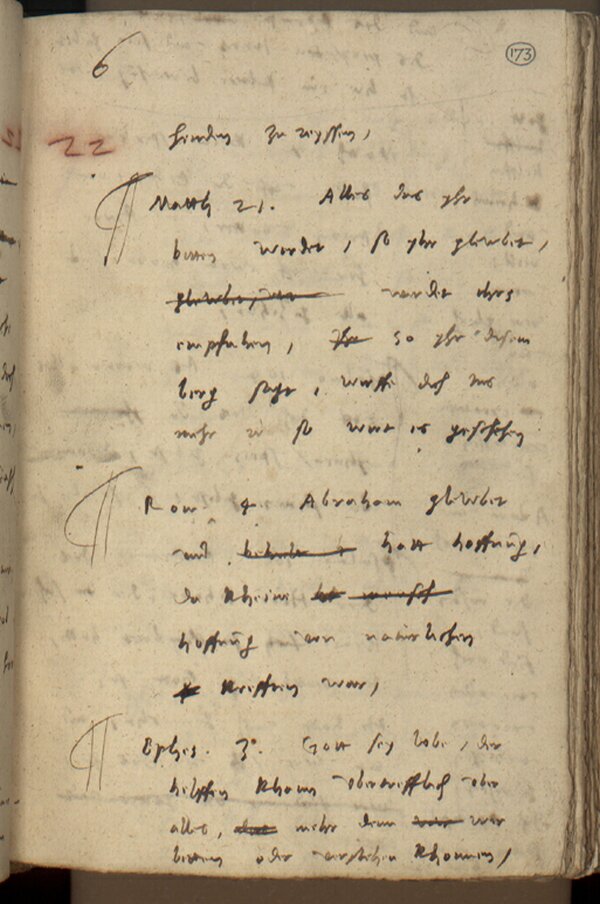 6
173
22
henden zu reyssen,
Matth 21. Alles das yhr
bitten werdet, so yhr glewbet,
werdet yhrs
empfahen, so yhr disem
berg sagt, wirffe dich ins
mehr so wirt es geschehen
Rom 4 Abraham glewbet
und hatt hoffnūg,
da kheine
hoffnūg von naturlichen
krefften war,
Ephes. 3. Gott sey lobe, der
helffen khann obertrefflich ober
alles, mehr denn wir
bitten oder verstehen khonnen,